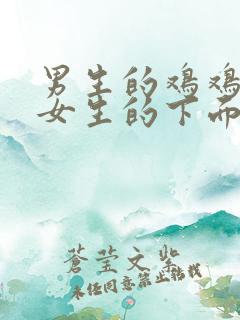 男生的鸡鸡
女生的下面
蒼莹文学
未经同意禁止转载